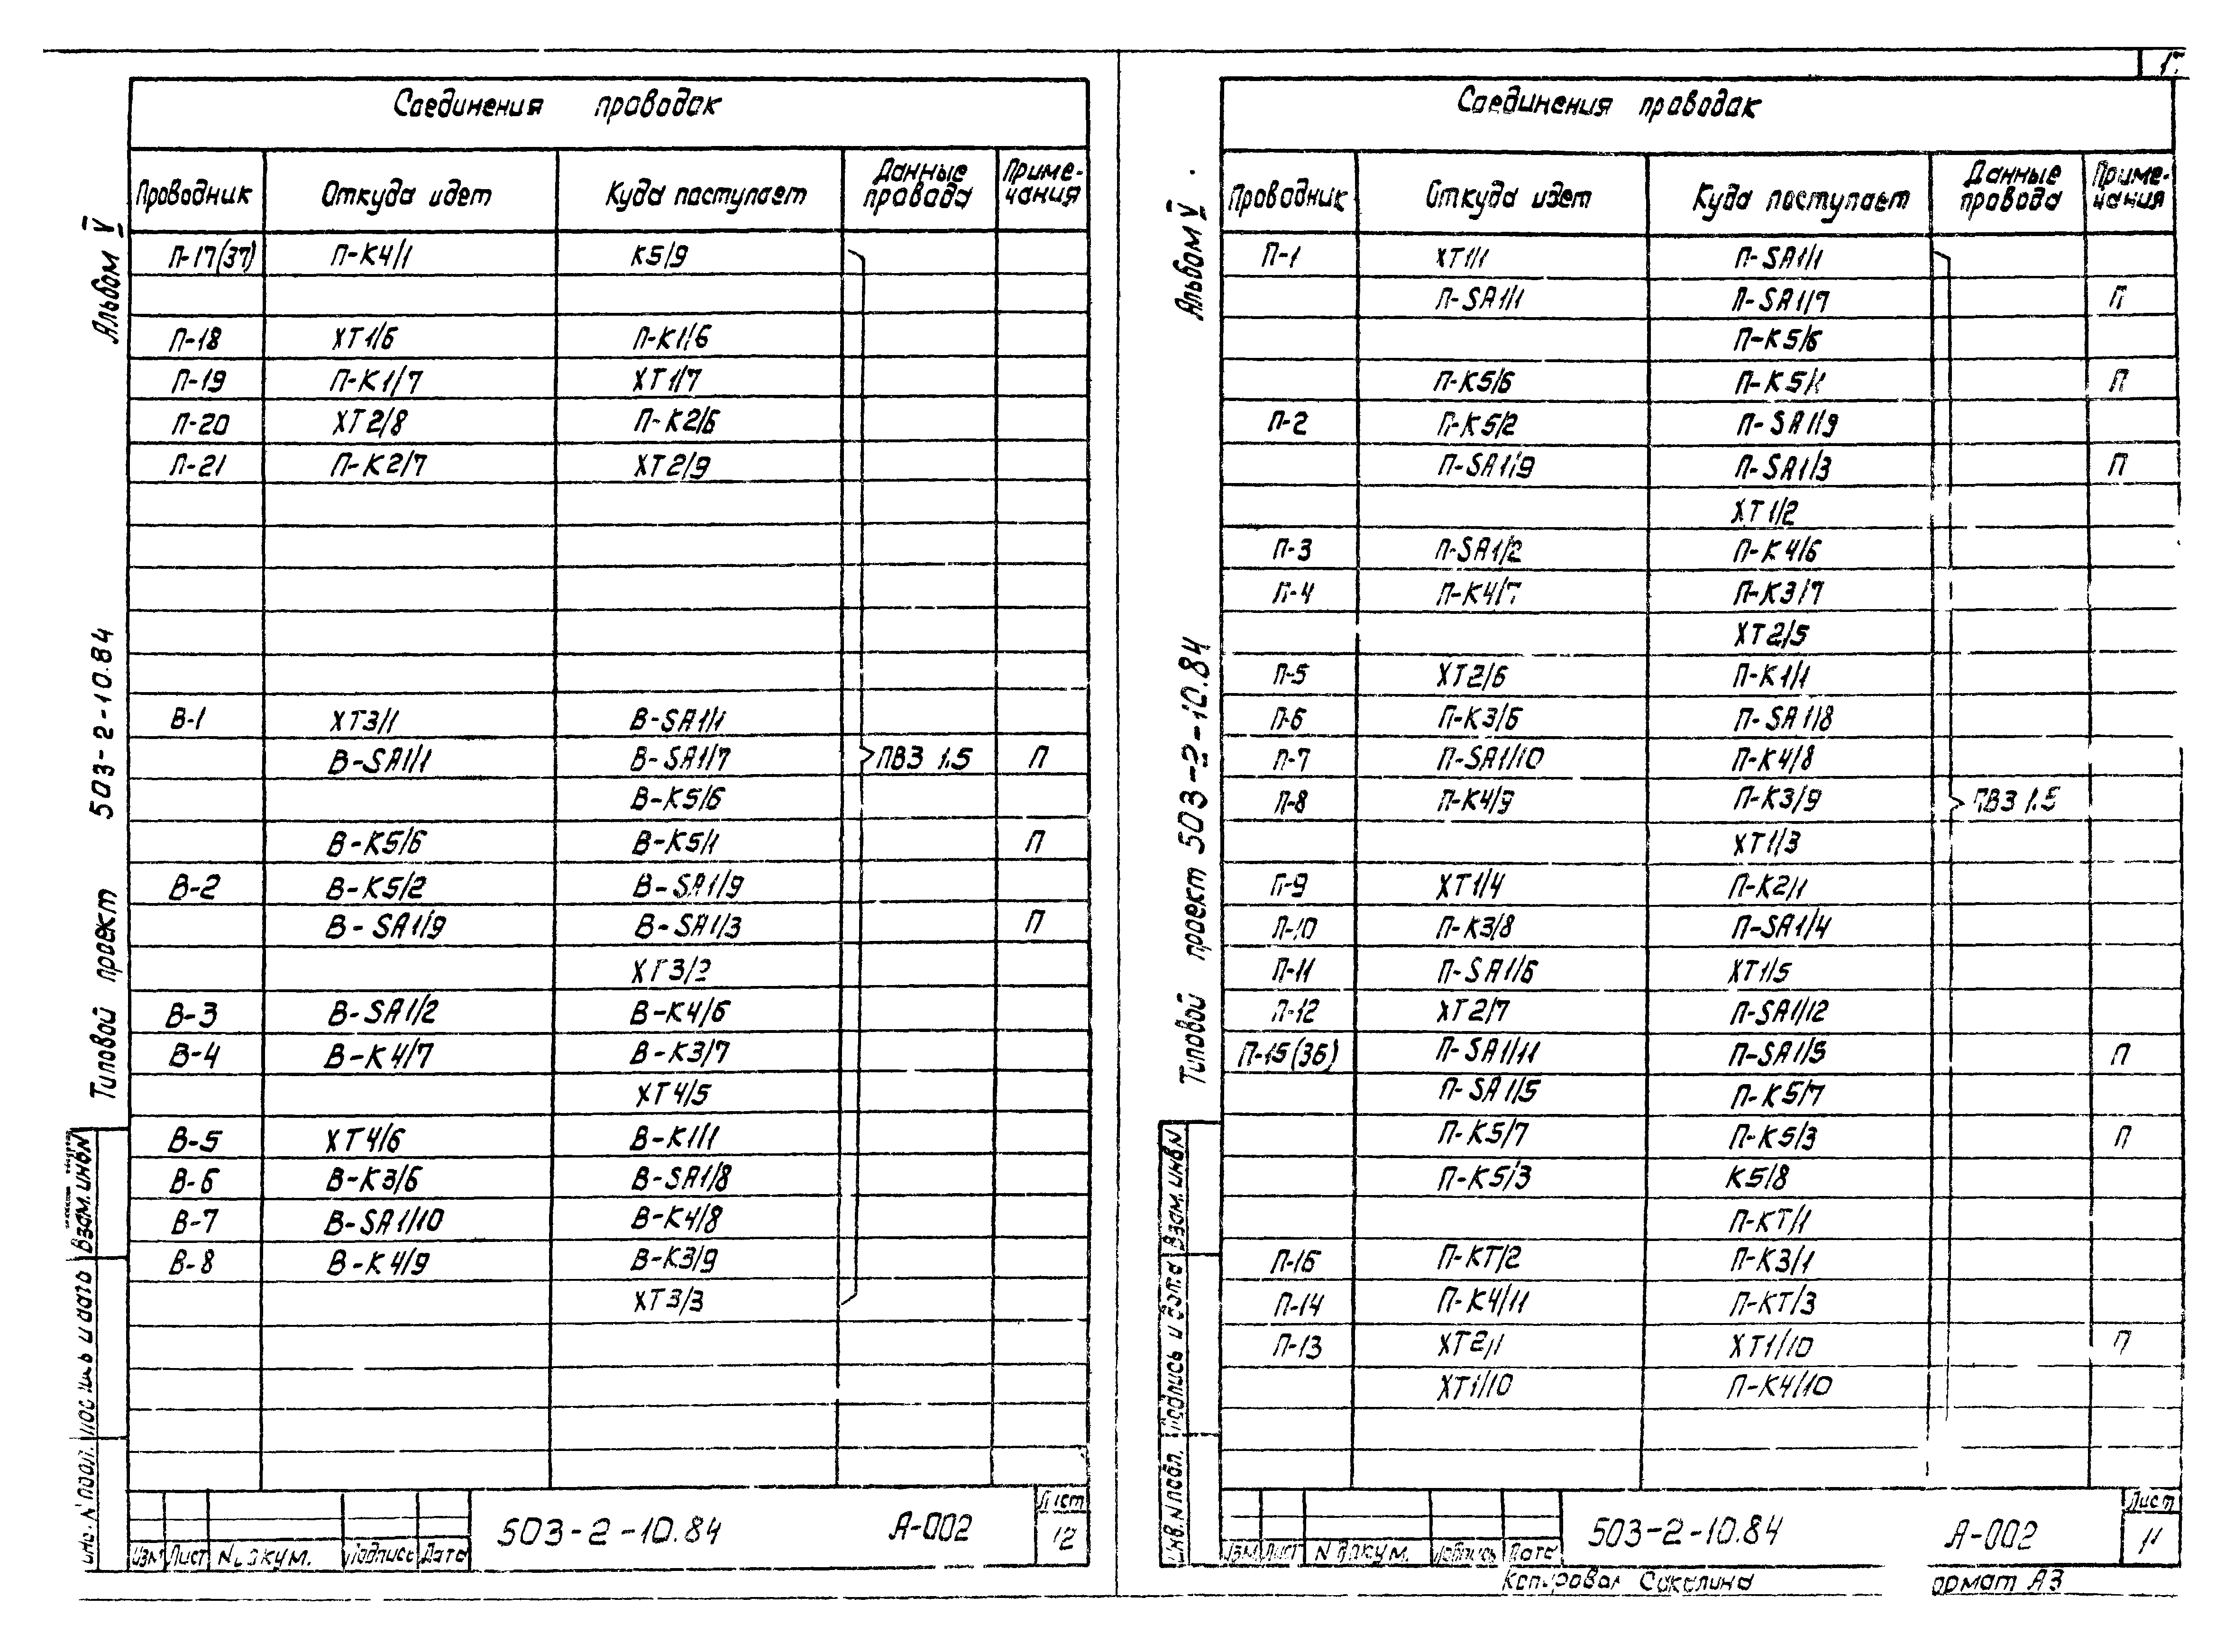 Соединения проводок
Проводник Откуда идет Куда поступает Данные провода Приме-чания
П-17(37) П-К4/1 К5/9
П-18 ХТ1/6 П-К1/6
П-19 П-К1/7 ХТ1/7
П-20 ХТ2/8 П-К2/6
П-21 П-К2/7 ХТ2/9
В-1 ХТ3/1 В-SA1/1
В-SA1/1 В-SA1/7 ПВ3 1.5 П
В-К5/6
В-К5/6 В-К5/1 П
В-2 В-К5/2 В-SA1/9
В-SA1/9 В-SA1/3 П
ХТ3/2
В-3 В-SA1/2 В-К4/6
В-4 В-К4/7 В-К3/7
ХТ4/5
В-5 ХТ4/6 В-К1/1
В-6 В-К3/6 В-SA1/8
В-7 В-SA1/10 В-К4/8
В-8 В-К4/9 В-К3/9
ХТ3/3
Альбом V
Типовой проект 503-2-10.84
Взам. инв N
Подпись и дата
Инв. N подл.
Изм Лист N докум. Подпись Дата
503-2-10.84 А-002
Лист
12
Соединения проводок
Проводник Откуда идет Куда поступает Данные провода Приме-чания
П-1 ХТ1/1 П-SA1/1
П-SA1/1 П-SA1/7 П
П-К5/6
П-К5/6 П-К5/1 П
П-2 П-К5/2 П-SA1/9
П-SA1/9 П-SA1/3 П
ХТ1/2
П-3 П-SA1/2 П-К4/6
П-4 П-К4/7 П-К3/7
ХТ2/5
П-5 ХТ2/6 П-К1/1
П-6 П-К3/6 П-SA1/8
П-7 П-SA1/10 П-К4/8
П-8 П-К4/9 П-К3/9 ПВ3 1.5
ХТ1/3
П-9 ХТ1/4 П-К2/1
П-10 П-К3/8 П-SA1/4
П-11 П-SA1/6 ХТ1/5
П-12 ХТ2/7 П-SA1/12
П-15(36) П-SA1/11 П-SA1/5 П
П-SA1/5 П-К5/7
П-К5/7 П-К5/3 П
П-К5/3 К5/8
П-КТ/1
П-16 П-КТ/2 П-К3/1
П-14 П-К4/11 П-КТ/3
П-13 ХТ2/1 ХТ1/10 П
ХТ1/10 П-К4/10
Альбом V
Типовой проект 503-2-10.84
Взам. инв. N
Подпись и дата
Инв. N подл.
Изм Лист N докум. Подпись Дата
503-2-10.84 А-002
Лист
11
Копировал Соколина
ормат А3